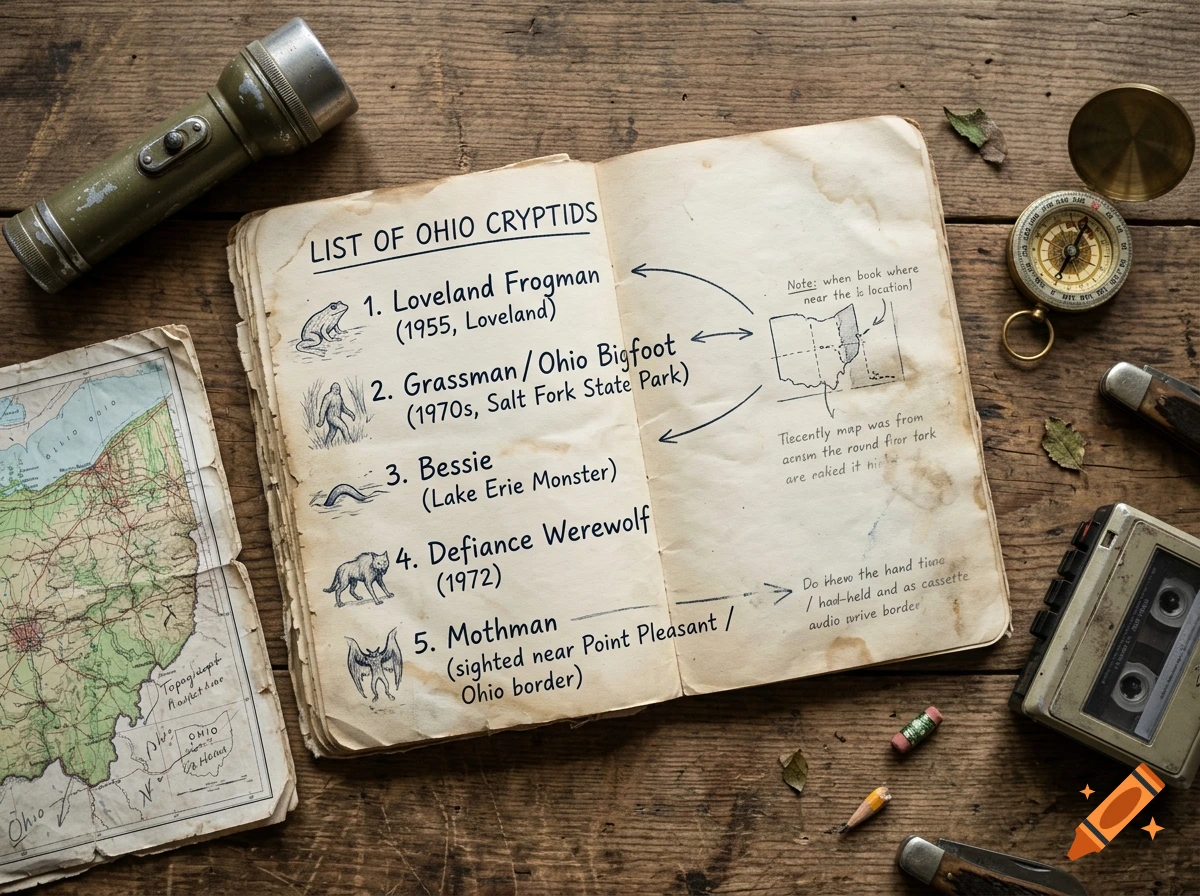 LIST OF OHIO CRYPTIDS
1. Loveland Frogman
(1955, Loveland)
2. Grassman/Ohio Bigfoot
(1970s, Salt Fork State Park)
3. Bessie
(Lake Erie Monster)
4. Defiance Werewolf
(1972)
5. Mothman
(sighted near Point Pleasant /
Ohio border)
Note: when book where
near the is location!
map was from
the round
are it
Do the hand
/ had-held and as cassette
audio border
OHIO
Ohio